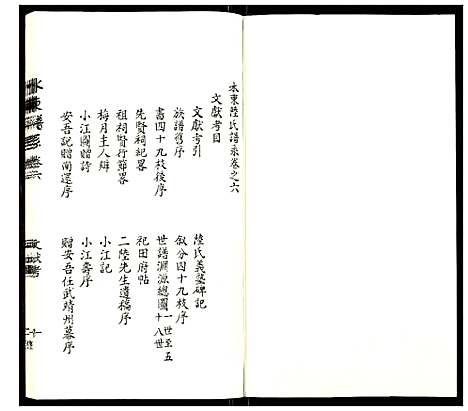 水東陸氏譜系卷之六
文獻考目
文獻考引
族譜舊序
書四十九枝後序
先賢祠紀畧
祖祠賢行節畧
梅月主人辨
小江圖贈詩
安吾記贈南還序
陸氏義塾碑記
敘分四十九枝序
世譜淵源總圖一世至五十八世
祀田府帖
二陸先生遺稿序
小江記
小江壽序
贈安吾任武靖州幕序
文獻考